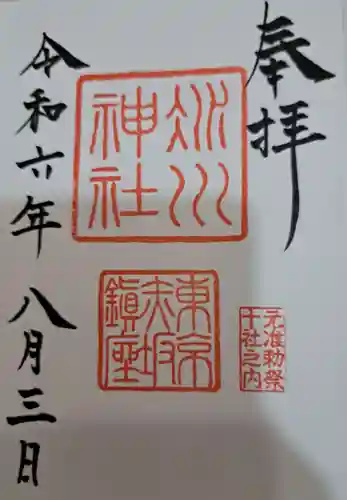 奉拝
氷川
神社
東京
赤坂
鎮座
元准勅祭
十社之内
令和六年 八月三日